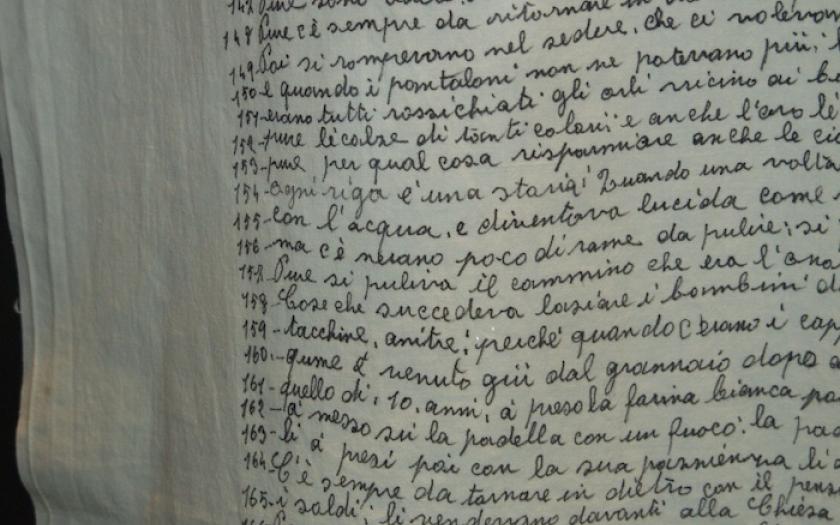 148 Pure c'è sempre da ritornare in
149 Poi si rompevano nel sedere, che ci volevan
150 e quando i pantaloni non ne potevano più; l
151 erano tutti rossichiati gli orli vicino ai
152 pure le calze di tanti colori: e anche l'oro
153 pure per qual cosa risparmiare anche le
154 Ogni riga e' una storia! Quando una volta
155 Con l'acqua, e diventava lucida come
156 ma c'è nerano poco di rame da pulire; si
158 Pure si puliva il cammino che era l'
158 Cose che succedeva lasiare i bambini d
159 tacchine, anitre; perché quando c'erano i
160 venuto giù dal grannaio dopo
161 quello di, 10, anni, à preso la farina bianca
162 à messo su la padella con un fuoco: la
163 li à presi poi con la sua
164 C'è sempre da tornare in dietro con il
165 i saldi; li vendevano davanti alla Chiesa